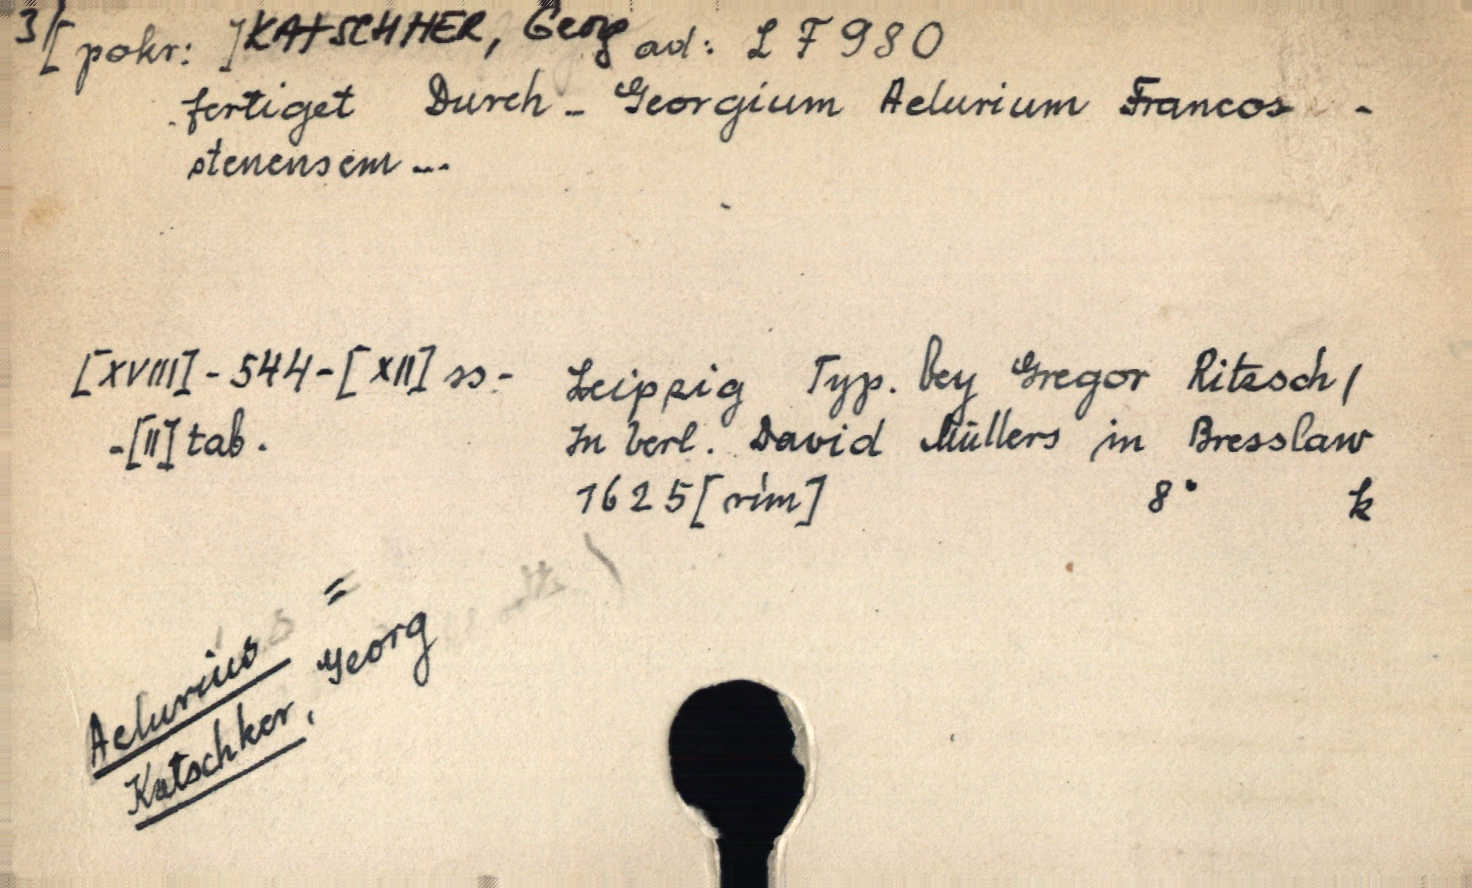 3/[pokr: ] KATSCHHER, Georg ad: L F 980
fertiget Durch - Georgium Aelurium Francos -
stenensem ...
[XVIII] - 544 - [XII] ss - Leipzig Typ. bey Gregor Ritzsch /
- [II] tab. In verl. David Müllers in Bresslaw
1625 [rím] 8° k
Aelurius =
Katschker, Georg